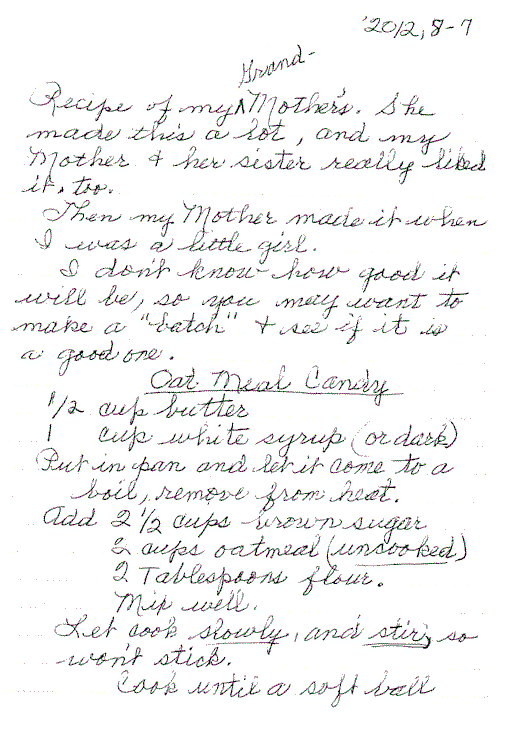 '2012, 8-7
Grand-
Recipe of my ^ Mother's. She
made this a lot, and my
Mother & her sister really liked
it, too.
Then my Mother made it when
I was a little girl.
I don't know how good it
will be, so you may want to
make a "batch" & see if it is
a good one.
Oat Meal Candy
1/2 cup butter
1 cup white syrup (or dark)
Put in pan and let it come to a
boil, remove from heat.
Add 2 1/2 cups brown sugar
2 cups oatmeal (uncooked)
2 Tablespoons flour.
Mix well.
Let cook slowly, and stir, so
won't stick.
Cook until a soft ball